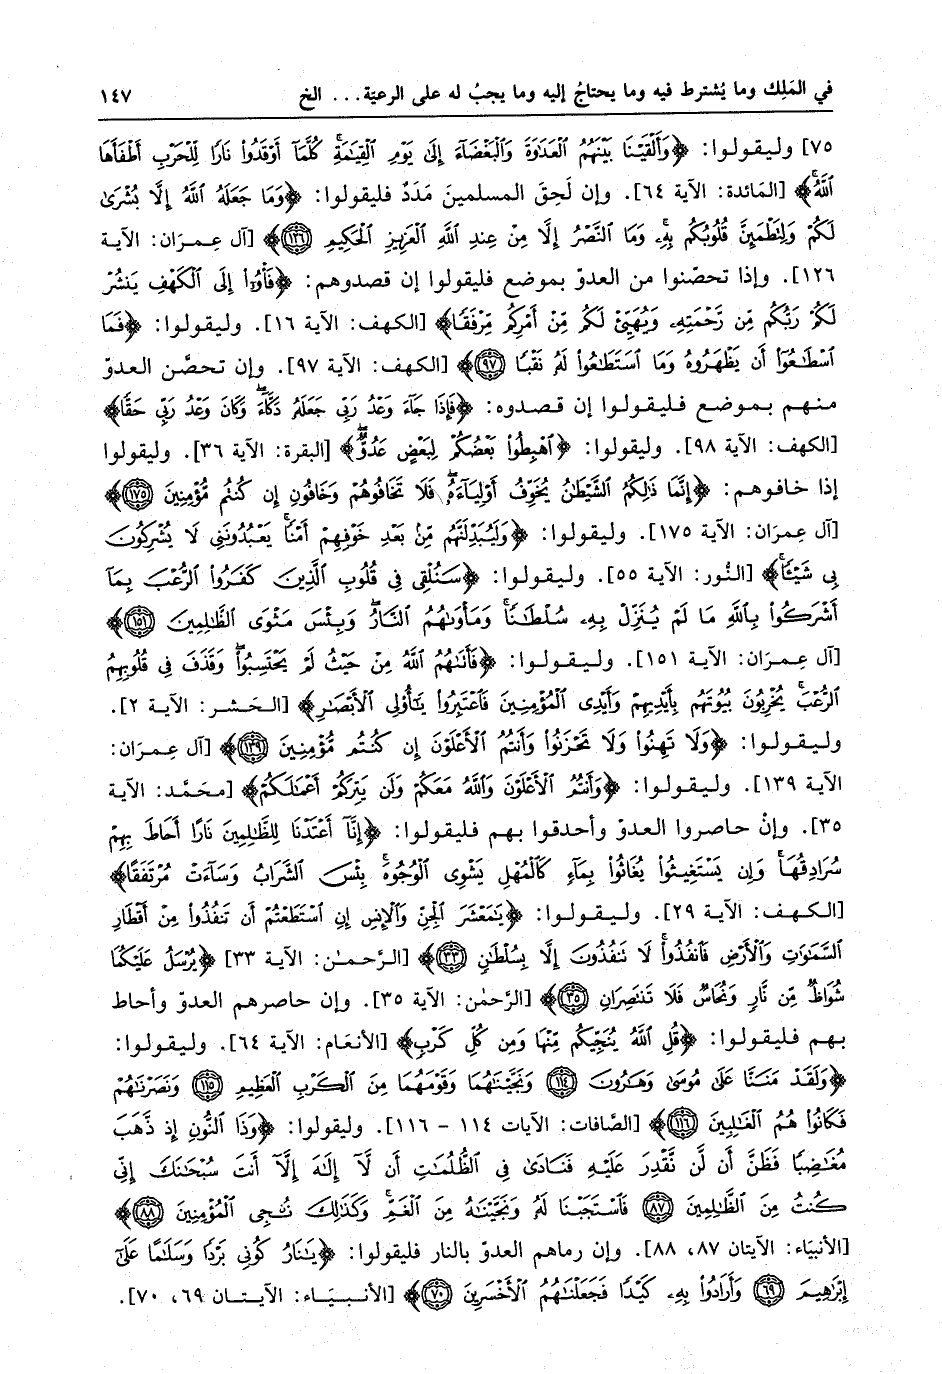 في المَلِك وما يُشترط فيه وما يحتاجُ إليه وما يجبُ له على الرعيّة... الخ ١٤٧
٧٥] وليقولوا: ﴿وَأَلْقَيْنَا بَيْنَهُمُ الْعَدَاوَةَ وَالْبَغْضَاءَ إِلَى يَوْمِ الْقِيَامَةِ كُلَّمَا أَوْقَدُوا نَارًا لِلْحَرْبِ أَطْفَأَهَا
اللَّهُ﴾ [المَائدة: الآية ٦٤]. وإن لَحِقَ المسلمينَ مَدَدٌ فليقولوا: ﴿وَمَا جَعَلَهُ اللَّهُ إِلَّا بُشْرَى
لَكُمْ وَلِتَطْمَئِنَّ قُلُوبُكُمْ بِهِ وَمَا النَّصْرُ إِلَّا مِنْ عِنْدِ اللَّهِ الْعَزِيزِ الْحَكِيمِ ١٢٦﴾ [آل عِمرَان: الآية
١٢٦]. وإذا تحصّنوا من العدوّ بموضع فليقولوا إن قصدوهم: ﴿فَأْوُوا إِلَى الْكَهْفِ يَنْشُرْ
لَكُمْ رَبُّكُمْ مِنْ رَحْمَتِهِ وَيُهَيِّئْ لَكُمْ مِنْ أَمْرِكُمْ مِرْفَقًا﴾ [الكهف: الآية ١٦]. وليقولوا: ﴿فَمَا
اسْطَاعُوا أَنْ يَظْهَرُوهُ وَمَا اسْتَطَاعُوا لَهُ نَقْبًا ٩٧﴾ [الكهف: الآية ٩٧]. وإن تحصَّن العدوّ
منهم بموضع فليقولوا إن قصدوه: ﴿فَإِذَا جَاءَ وَعْدُ رَبِّي جَعَلَهُ دَكَّاءَ وَكَانَ وَعْدُ رَبِّي حَقًّا﴾
[الكهف: الآية ٩٨]. وليقولوا: ﴿اهْبِطُوا بَعْضُكُمْ لِبَعْضٍ عَدُوٌّ﴾ [البقرة: الآية ٣٦]. وليقولوا
إذا خافوهم: ﴿إِنَّمَا ذَلِكُمُ الشَّيْطَانُ يُخَوِّفُ أَوْلِيَاءَهُ فَلَا تَخَافُوهُمْ وَخَافُونِ إِنْ كُنْتُمْ مُؤْمِنِينَ ١٧٥﴾
[آل عِمرَان: الآية ١٧٥]. وليقولوا: ﴿وَلَيُبَدِّلَنَّهُمْ مِنْ بَعْدِ خَوْفِهِمْ أَمْنًا يَعْبُدُونَنِي لَا يُشْرِكُونَ
بِي شَيْئًا﴾ [النُّور: الآية ٥٥]. وليقولوا: ﴿سَنُلْقِي فِي قُلُوبِ الَّذِينَ كَفَرُوا الرُّعْبَ بِمَا
أَشْرَكُوا بِاللَّهِ مَا لَمْ يُنَزِّلْ بِهِ سُلْطَانًا وَمَأْوَاهُمُ النَّارُ وَبِئْسَ مَثْوَى الظَّالِمِينَ ١٥١﴾
[آل عِمرَان: الآية ١٥١]. وليقولوا: ﴿فَأَتَاهُمُ اللَّهُ مِنْ حَيْثُ لَمْ يَحْتَسِبُوا وَقَذَفَ فِي قُلُوبِهِمُ
الرُّعْبَ يُخْرِبُونَ بُيُوتَهُمْ بِأَيْدِيهِمْ وَأَيْدِي الْمُؤْمِنِينَ فَاعْتَبِرُوا يَا أُولِي الْأَبْصَارِ﴾ [الحَشر: الآية ٢].
وليقولوا: ﴿وَلَا تَهِنُوا وَلَا تَحْزَنُوا وَأَنْتُمُ الْأَعْلَوْنَ إِنْ كُنْتُمْ مُؤْمِنِينَ ١٣٩﴾ [آل عِمرَان:
الآية ١٣٩]. وليقولوا: ﴿وَأَنْتُمُ الْأَعْلَوْنَ وَاللَّهُ مَعَكُمْ وَلَنْ يَتِرَكُمْ أَعْمَالَكُمْ﴾ [محَمَّد: الآية
٣٥]. وإنْ حاصروا العدوّ وأحدقوا بهم فليقولوا: ﴿إِنَّا أَعْتَدْنَا لِلظَّالِمِينَ نَارًا أَحَاطَ بِهِمْ
سُرَادِقُهَا وَإِنْ يَسْتَغِيثُوا يُغَاثُوا بِمَاءٍ كَالْمُهْلِ يَشْوِي الْوُجُوهَ بِئْسَ الشَّرَابُ وَسَاءَتْ مُرْتَفَقًا﴾
[الكهف: الآية ٢٩]. وليقولوا: ﴿يَا مَعْشَرَ الْجِنِّ وَالْإِنْسِ إِنِ اسْتَطَعْتُمْ أَنْ تَنْفُذُوا مِنْ أَقْطَارِ
السَّمَاوَاتِ وَالْأَرْضِ فَانْفُذُوا لَا تَنْفُذُونَ إِلَّا بِسُلْطَانٍ ٣٣﴾ [الرَّحمٰن: الآية ٣٣] ﴿يُرْسَلُ عَلَيْكُمَا
شُوَاظٌ مِنْ نَارٍ وَنُحَاسٌ فَلَا تَنْتَصِرَانِ ٣٥﴾ [الرَّحمٰن: الآية ٣٥]. وإن حاصرهم العدوّ وأحاط
بهم فليقولوا: ﴿قُلِ اللَّهُ يُنَجِّيكُمْ مِنْهَا وَمِنْ كُلِّ كَرْبٍ﴾ [الأنعَام: الآية ٦٤]. وليقولوا:
﴿وَلَقَدْ مَنَنَّا عَلَى مُوسَى وَهَارُونَ ١١٤ وَنَجَّيْنَاهُمَا وَقَوْمَهُمَا مِنَ الْكَرْبِ الْعَظِيمِ ١١٥ وَنَصَرْنَاهُمْ
فَكَانُوا هُمُ الْغَالِبِينَ ١١٦﴾ [الصَّافات: الآيات ١١٤ - ١١٦]. وليقولوا: ﴿وَذَا النُّونِ إِذْ ذَهَبَ
مُغَاضِبًا فَظَنَّ أَنْ لَنْ نَقْدِرَ عَلَيْهِ فَنَادَى فِي الظُّلُمَاتِ أَنْ لَا إِلَهَ إِلَّا أَنْتَ سُبْحَانَكَ إِنِّي
كُنْتُ مِنَ الظَّالِمِينَ ٨٧ فَاسْتَجَبْنَا لَهُ وَنَجَّيْنَاهُ مِنَ الْغَمِّ وَكَذَلِكَ نُنْجِي الْمُؤْمِنِينَ ٨٨﴾
[الأنبيَاء: الآيتان ٨٧، ٨٨]. وإن رماهم العدوّ بالنار فليقولوا: ﴿يَا نَارُ كُونِي بَرْدًا وَسَلَامًا عَلَى
إِبْرَاهِيمَ ٦٩ وَأَرَادُوا بِهِ كَيْدًا فَجَعَلْنَاهُمُ الْأَخْسَرِينَ ٧٠﴾ [الأنبيَاء: الآيتان ٦٩، ٧٠].